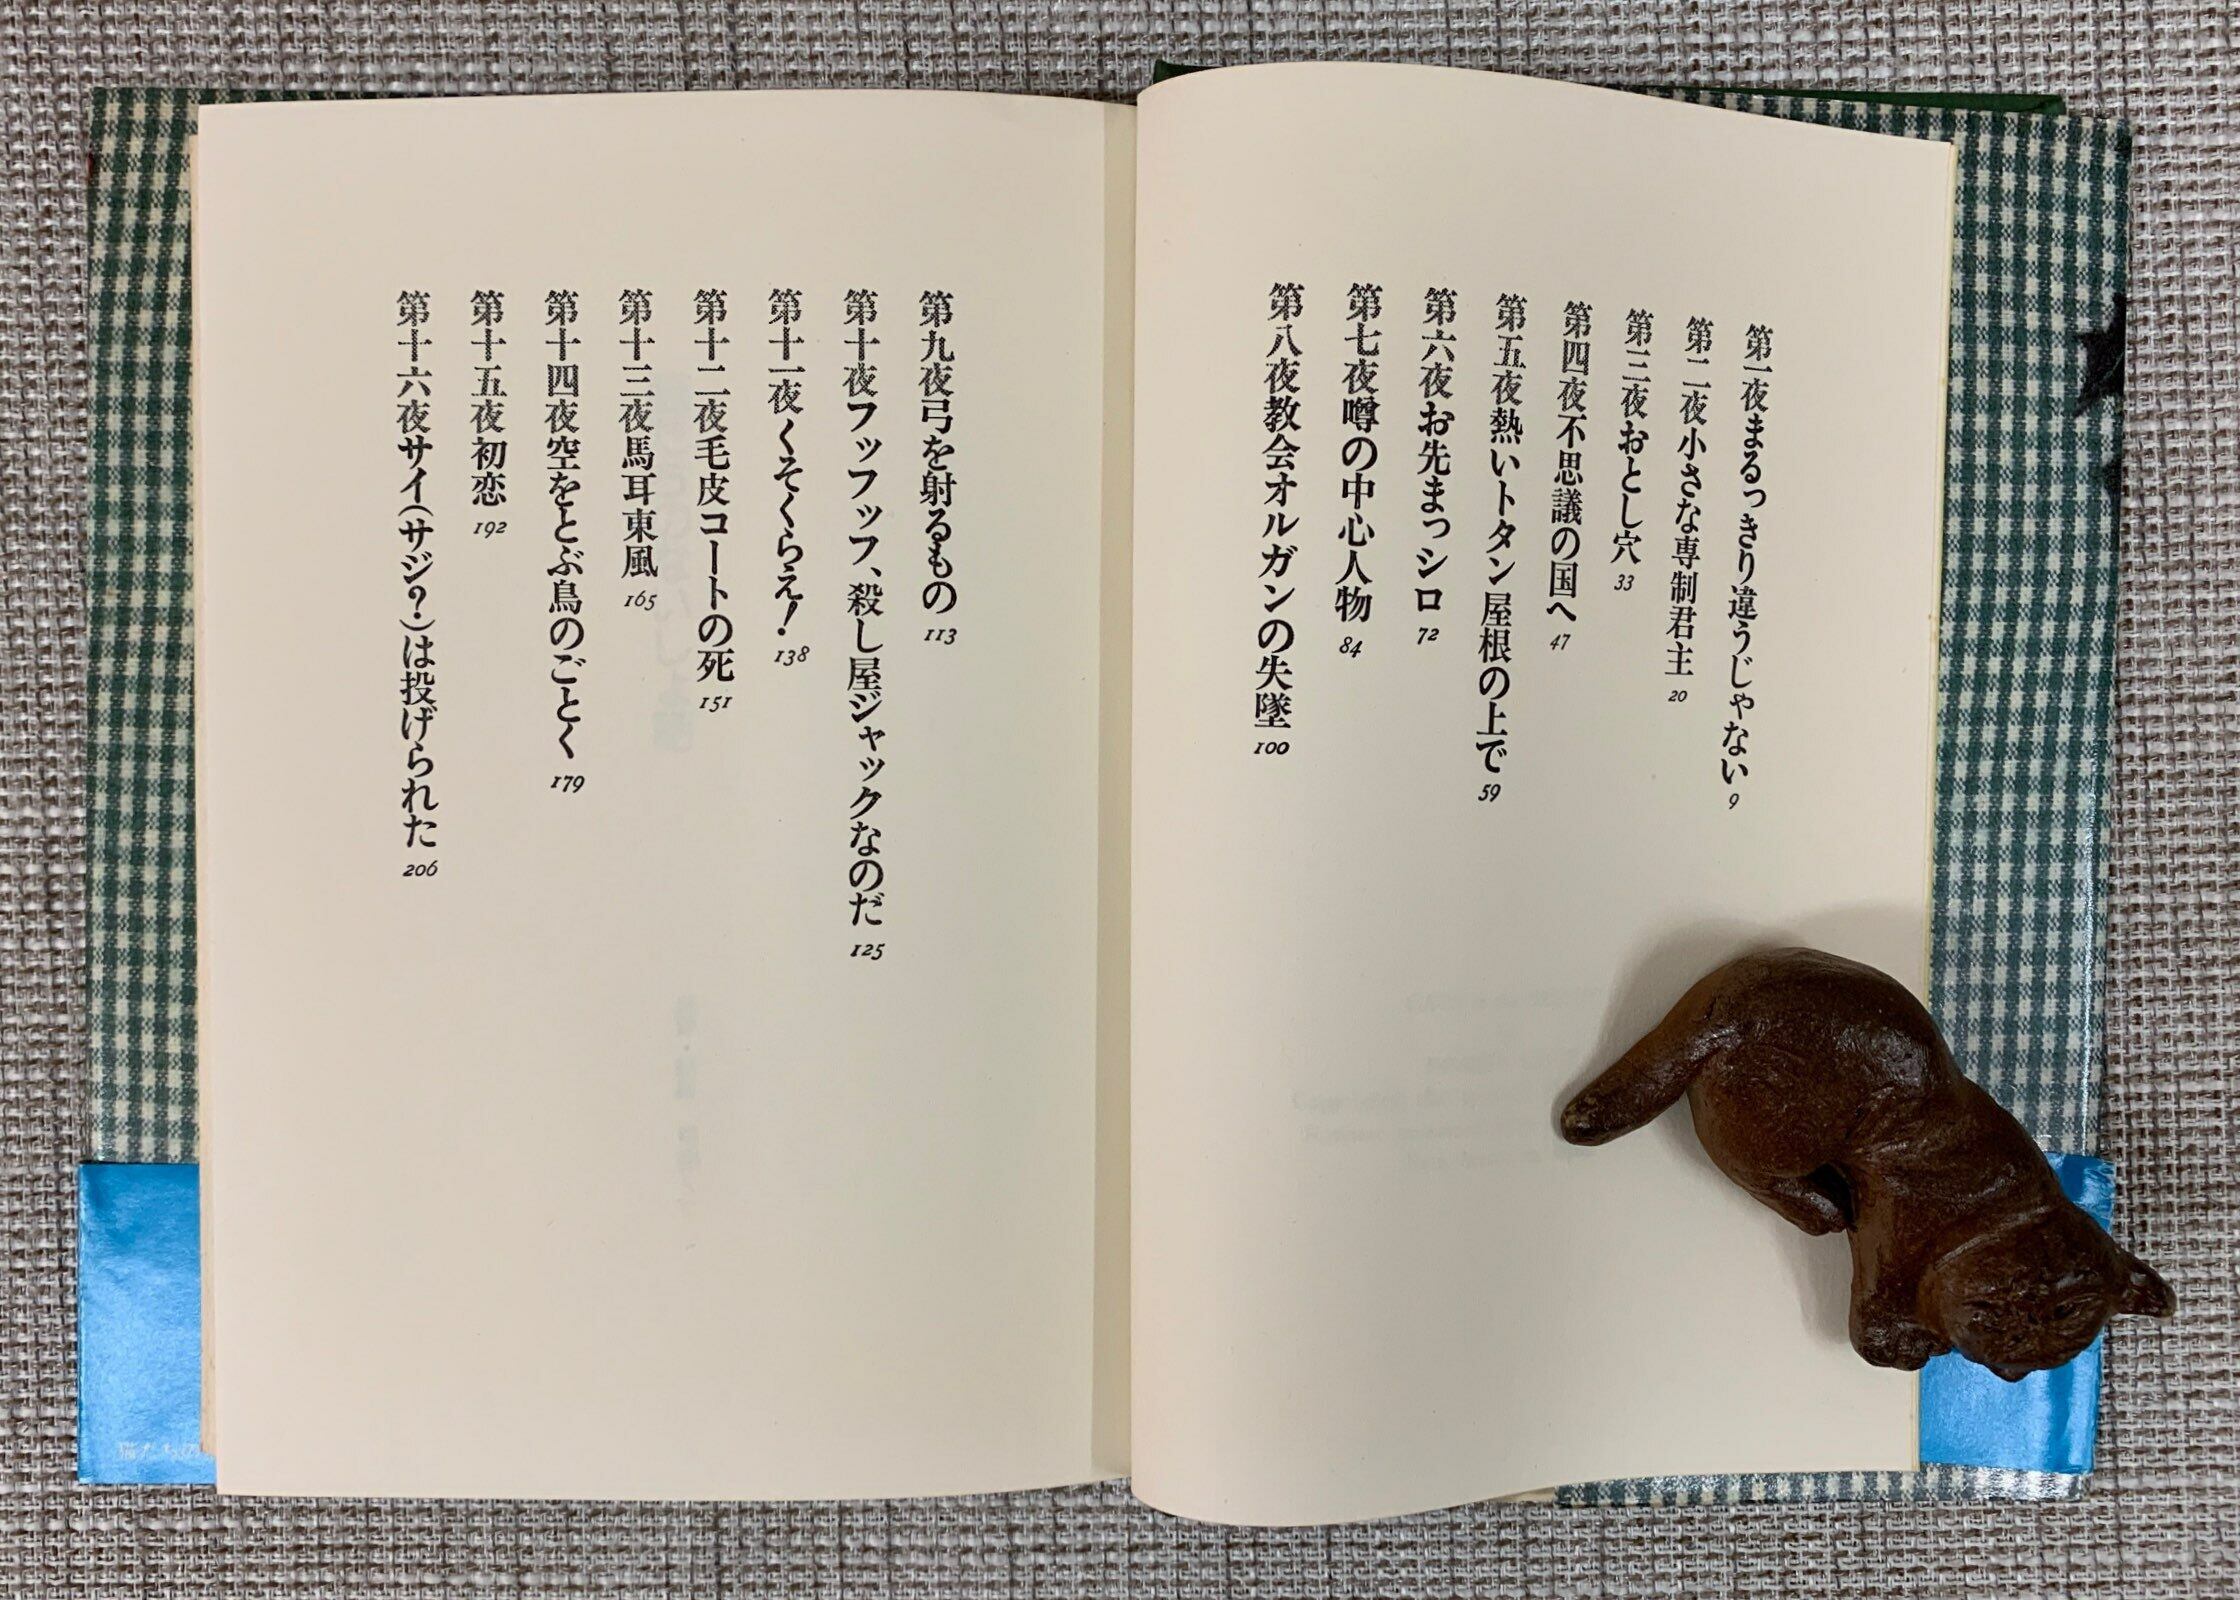 第一夜まるっきり違うじゃない 9
第二夜小さな専制君主 20
第三夜おとし穴 33
第四夜不思議の国へ 47
第五夜熱いトタン屋根の上で 59
第六夜お先まっシロ 72
第七夜噂の中心人物 84
第八夜教会オルガンの失墜 100
第九夜弓を射るもの 113
第十夜フッフフッフ、殺し屋ジャックなのだ 125
第十一夜くそくらえ! 138
第十二夜毛皮コートの死 151
第十三夜馬耳東風 165
第十四夜空をとぶ鳥のごとく 179
第十五夜初恋 192
第十六夜サイ(サジ?)は投げられた 206